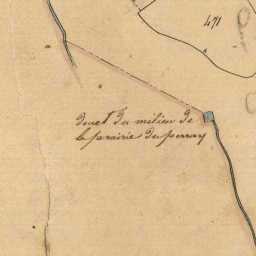 471
douet du milieu de
la prairie du perray